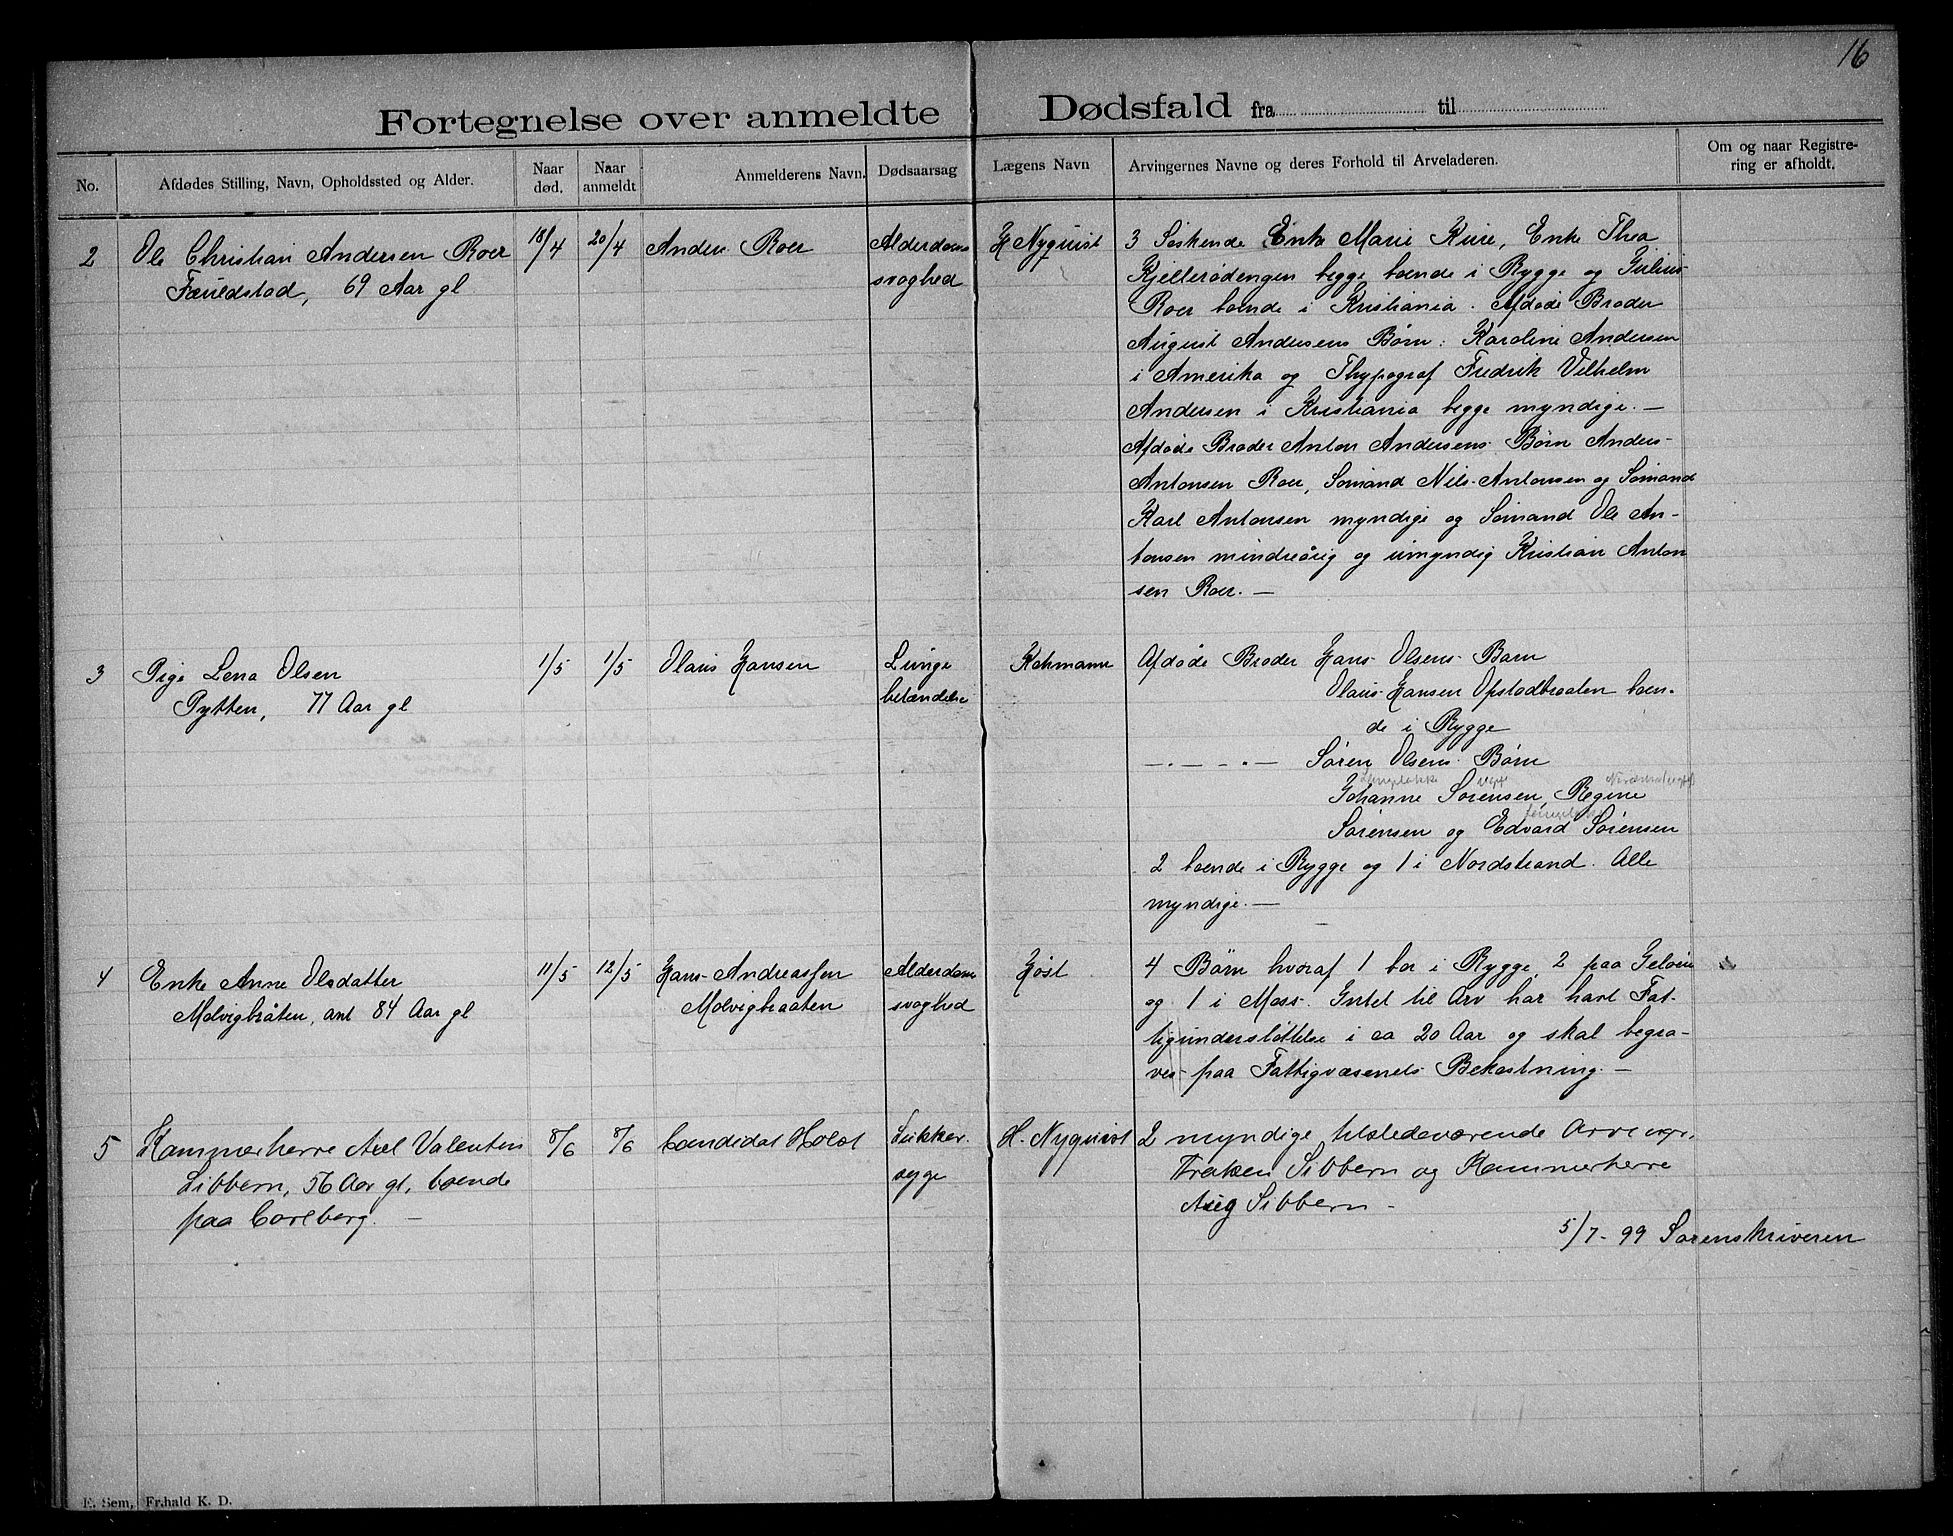 16
Fortegnelse over anmeldte Dødsfald fra til
No.
Afdødes Stilling, Navn, Opholdssted og Alder.
Naar død.
Naar anmeldt
Anmelderens Navn.
Dødsaarsag
Lægens Navn
Arvingernes Navne og deres Forhold til Arveladeren.
Om og naar Registrering er afholdt.
2
Ole Christian Andersen Roer
Fæuldstad, 69 Aar gl
18/4
20/4
Anders Roer
Alderdoms
svaghed
H Nyquist
3 Søskende Enke Marie Kure, Enke Thea
Kjellerødengen begge boende i Rygge og Julius
Roer boende i Kristiania. Afdøde Broder
August Andersens Børn: Karoline Andersen
i Amerika og Thypograf Fredrik Vilhelm
Andersen i Kristiania begge myndige. —
Afdøde Broder Anton Andersens Børn Anders
Antonsen Roer, Sømand Nils Antonsen og Sømand
Karl Antonsen myndige og Sømand Ole An-
tonsen mindreårig og umyndig Kristian Anton
sen Roer. —
3
Pige Lena Olsen
Pytten, 77 Aar gl
1/5
1/5
Olaus Hansen
Lunge
betændelse
Kohmann
Afdøde Broder Hans Olsens Barn
Olaus Hansen Opstadbraaten boen-
de i Rygge
— . — . — Søren Olsens Børn
Johanne Sørensen, Regine
Sørensen og Edvard Sørensen
2 boende i Rygge og 1 i Nordstrand. Alle
myndige. —
4
Enke Anne Olsdatter
Molvigbråten, ant 84 Aar gl
11/5
12/5
Hans Andreassen
Molvigbraaten
Alderdoms
svaghed
Høst
4 Børn hvoraf 1 bor i Rygge, 2 paa Geløen
og 1 i Moss. Intet til Arv har havt Fat-
tigunderstøttelse i ca 20 Aar og skal begra-
ves paa Fattigvæsenets Bekostning. —
5
Kammerherre Axel Valentin
Sibbern, 56 Aar gl, boende
paa Carlberg. —
8/6
8/6
Candidat Holst
Sukker-
syge
H. Nyquist
2 myndige tilstedeværende Arvinger.
Frøken Sibbern og Kammerherre
Aug Sibbern —
5/7 - 99 Sorenskriveren
E. Sem, Fr.hald K. D.